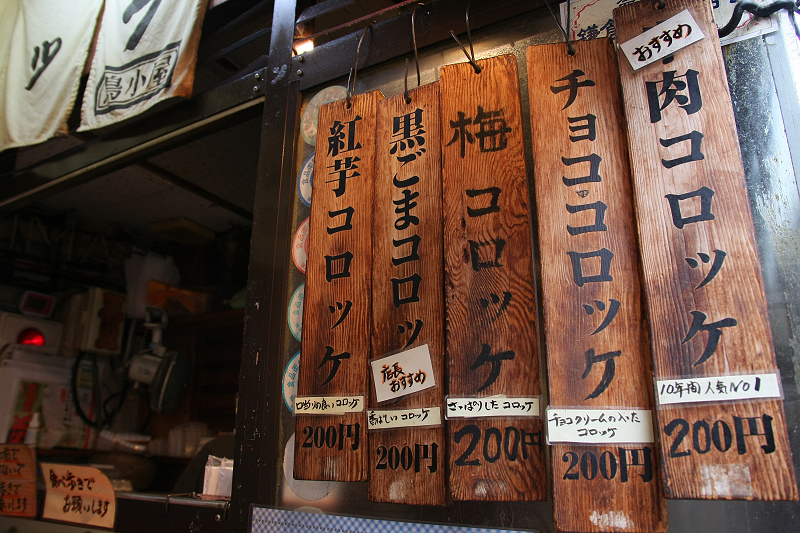 鳥小屋
紅芋コロッケ
口当りの良いコロッケ
200円
黒ごまコロッケ
店長
おすすめ
香ばしいコロッケ
200円
梅コロッケ
さっぱりしたコロッケ
200円
チョココロッケ
チョコクリームの入った
コロッケ
200円
おすすめ
肉コロッケ
10年間人気NO1
200円
食べ歩きで
お願いします